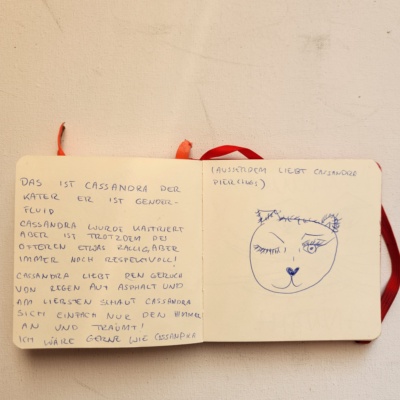 DAS IST CASSANDRA DER
KATER ER IST GENDER-
FLUID
CASSANDRA WURDE KASTRIERT
ABER IST TROTZDEM DES
ÖFTEREN ETWAS RALLIG ABER
IMMER NOCH RESPEKTVOLL!
CASSANDRA LIEBT DEN GERUCH
VON REGEN AUF ASPHALT UND
AM LIEBSTEN SCHAUT CASSANDRA
SICH EINFACH NUR DEN HIMMEL
AN UND TRÄUMT!
ICH WÄRE GERNE WIE CASSANDRA
(AUSSERDEM LIEBT CASSANDRA
PIERCINGS)